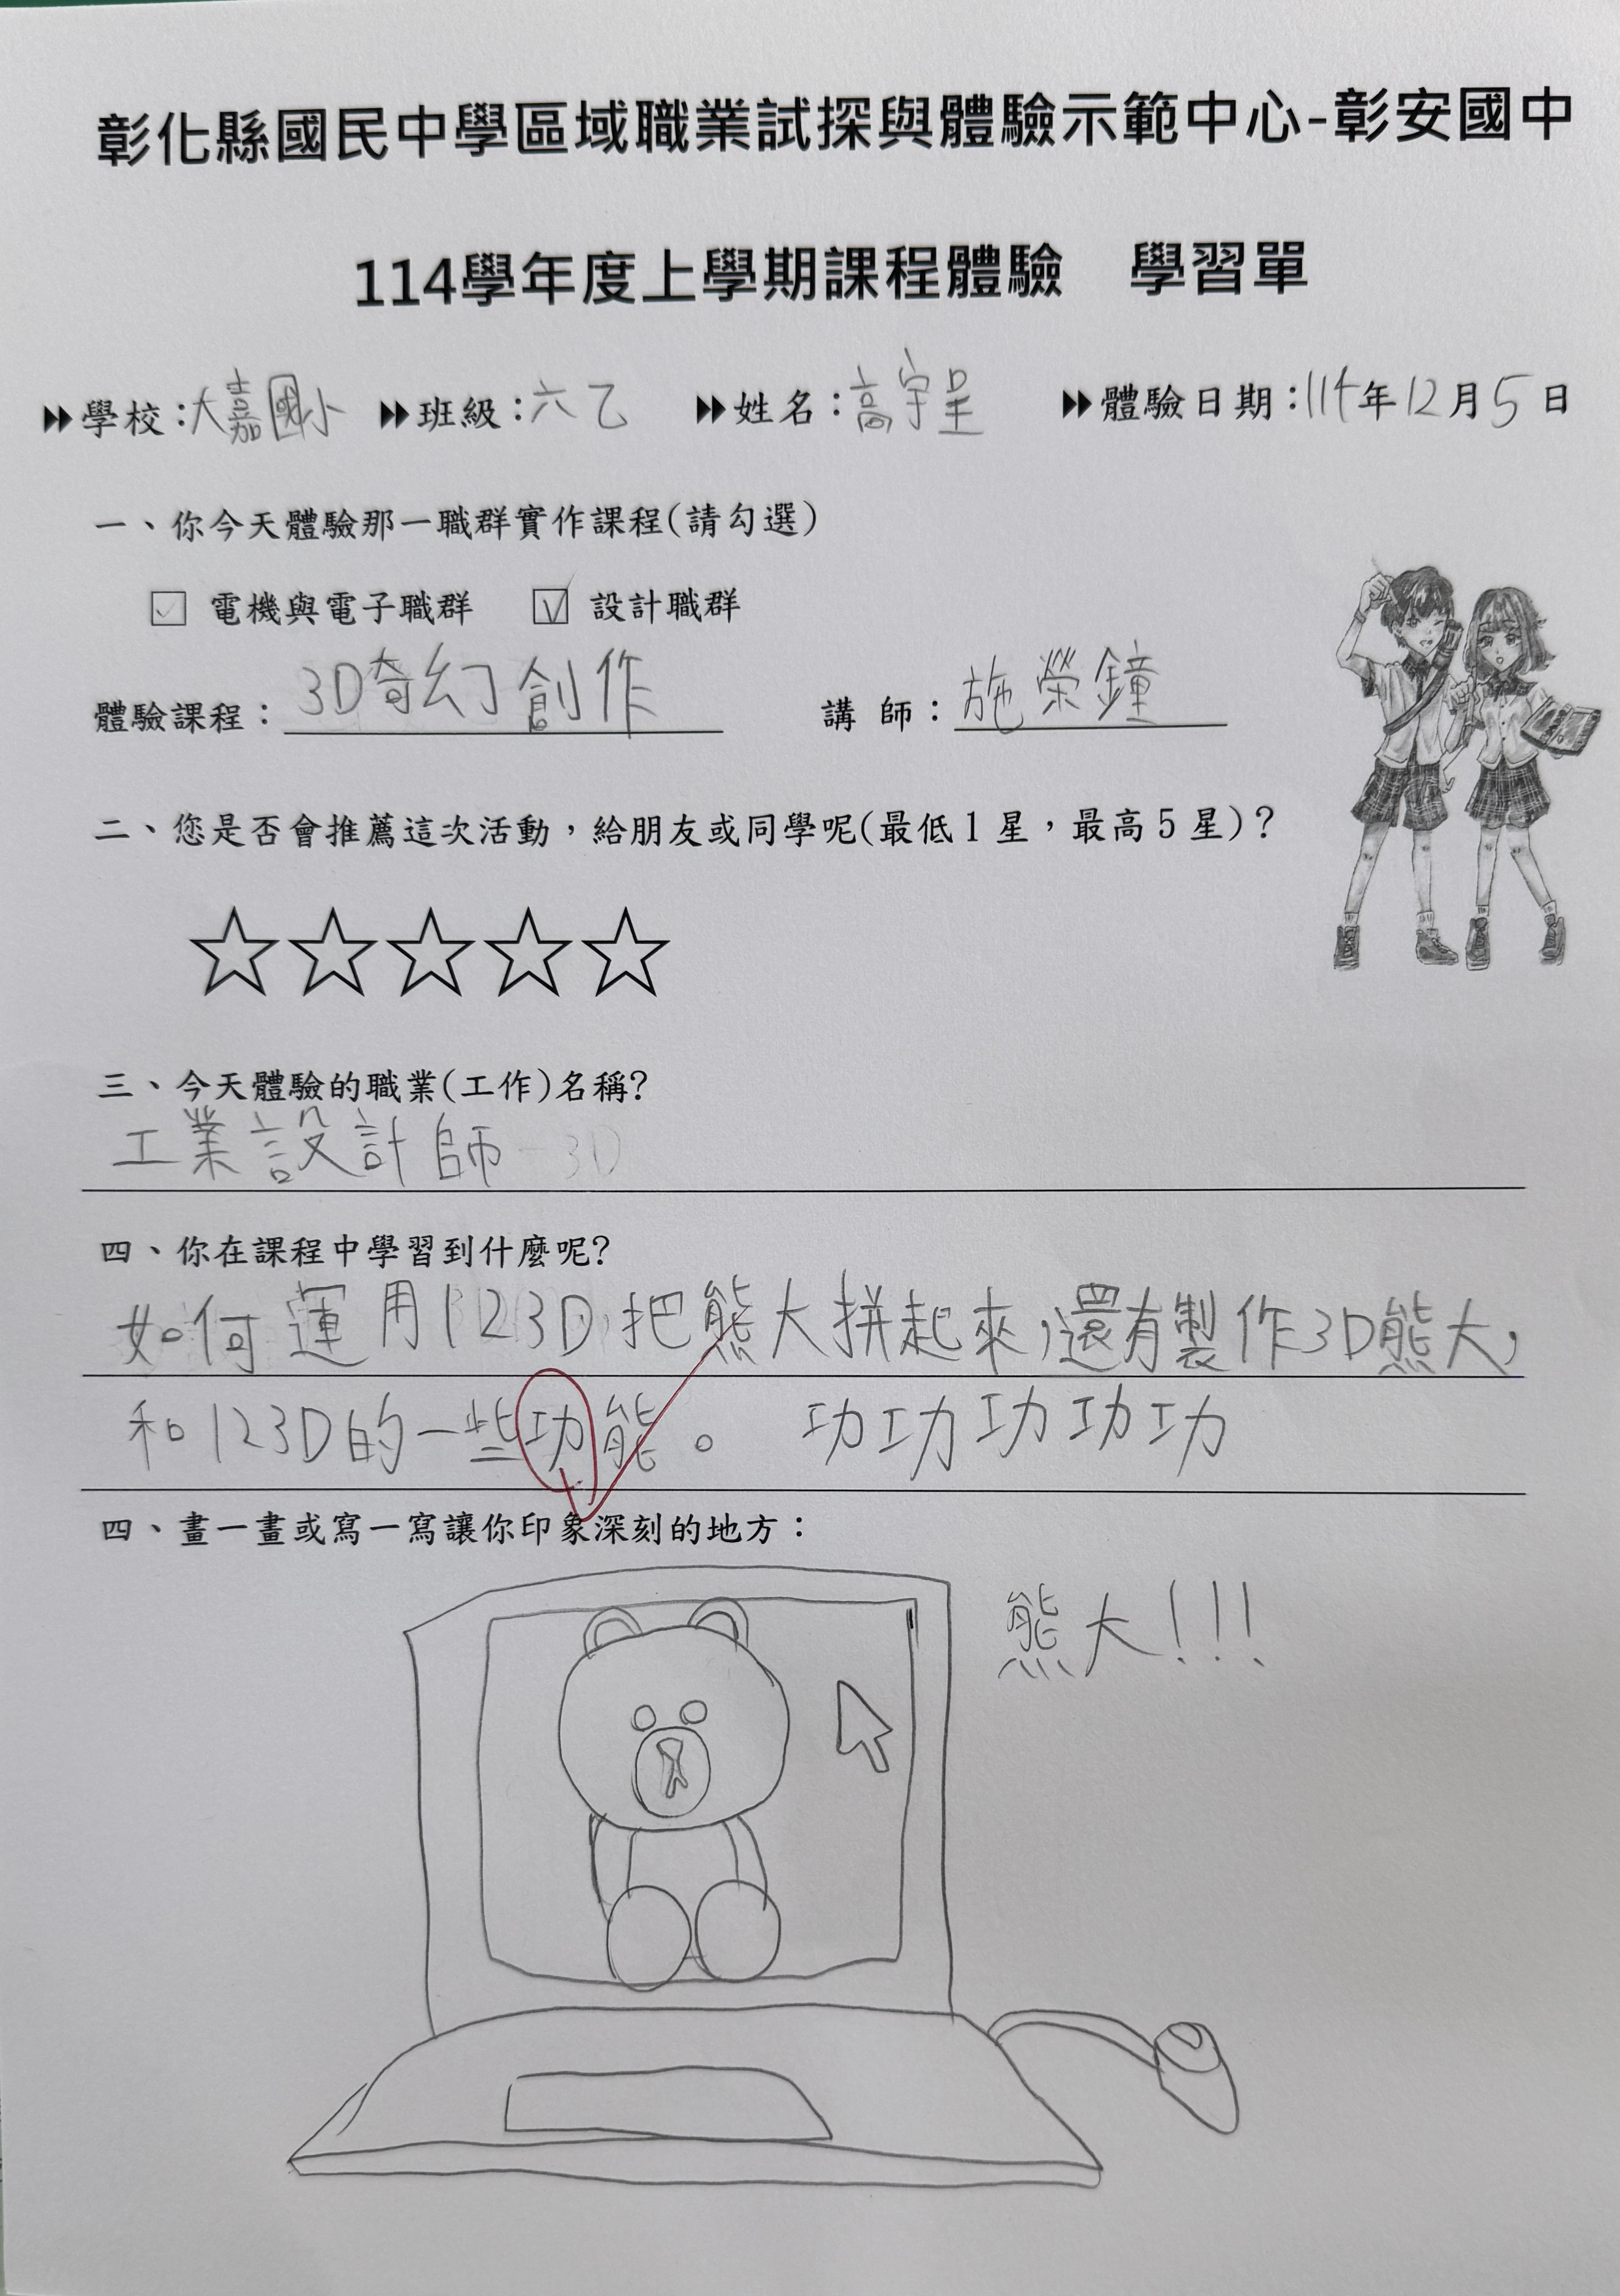 彰化縣國民中學區域職業試探與體驗示範中心-彰安國中
114學年度上學期課程體驗　學習單
學校：大嘉國小 班級：六乙 姓名：高宇呈 體驗日期：114年12月5日
一、你今天體驗那一職群實作課程(請勾選)
☑ 電機與電子職群 ☑ 設計職群
體驗課程：3D奇幻創作 講 師：施榮鐘
二、您是否會推薦這次活動，給朋友或同學呢(最低1星，最高5星)？
☆☆☆☆☆
三、今天體驗的職業(工作)名稱?
工業設計師-3D
四、你在課程中學習到什麼呢?
如何運用123D,把熊大拼起來,還有製作3D熊大,
和123D的一些功能。 功功功功功
四、畫一畫或寫一寫讓你印象深刻的地方：
熊大!!!